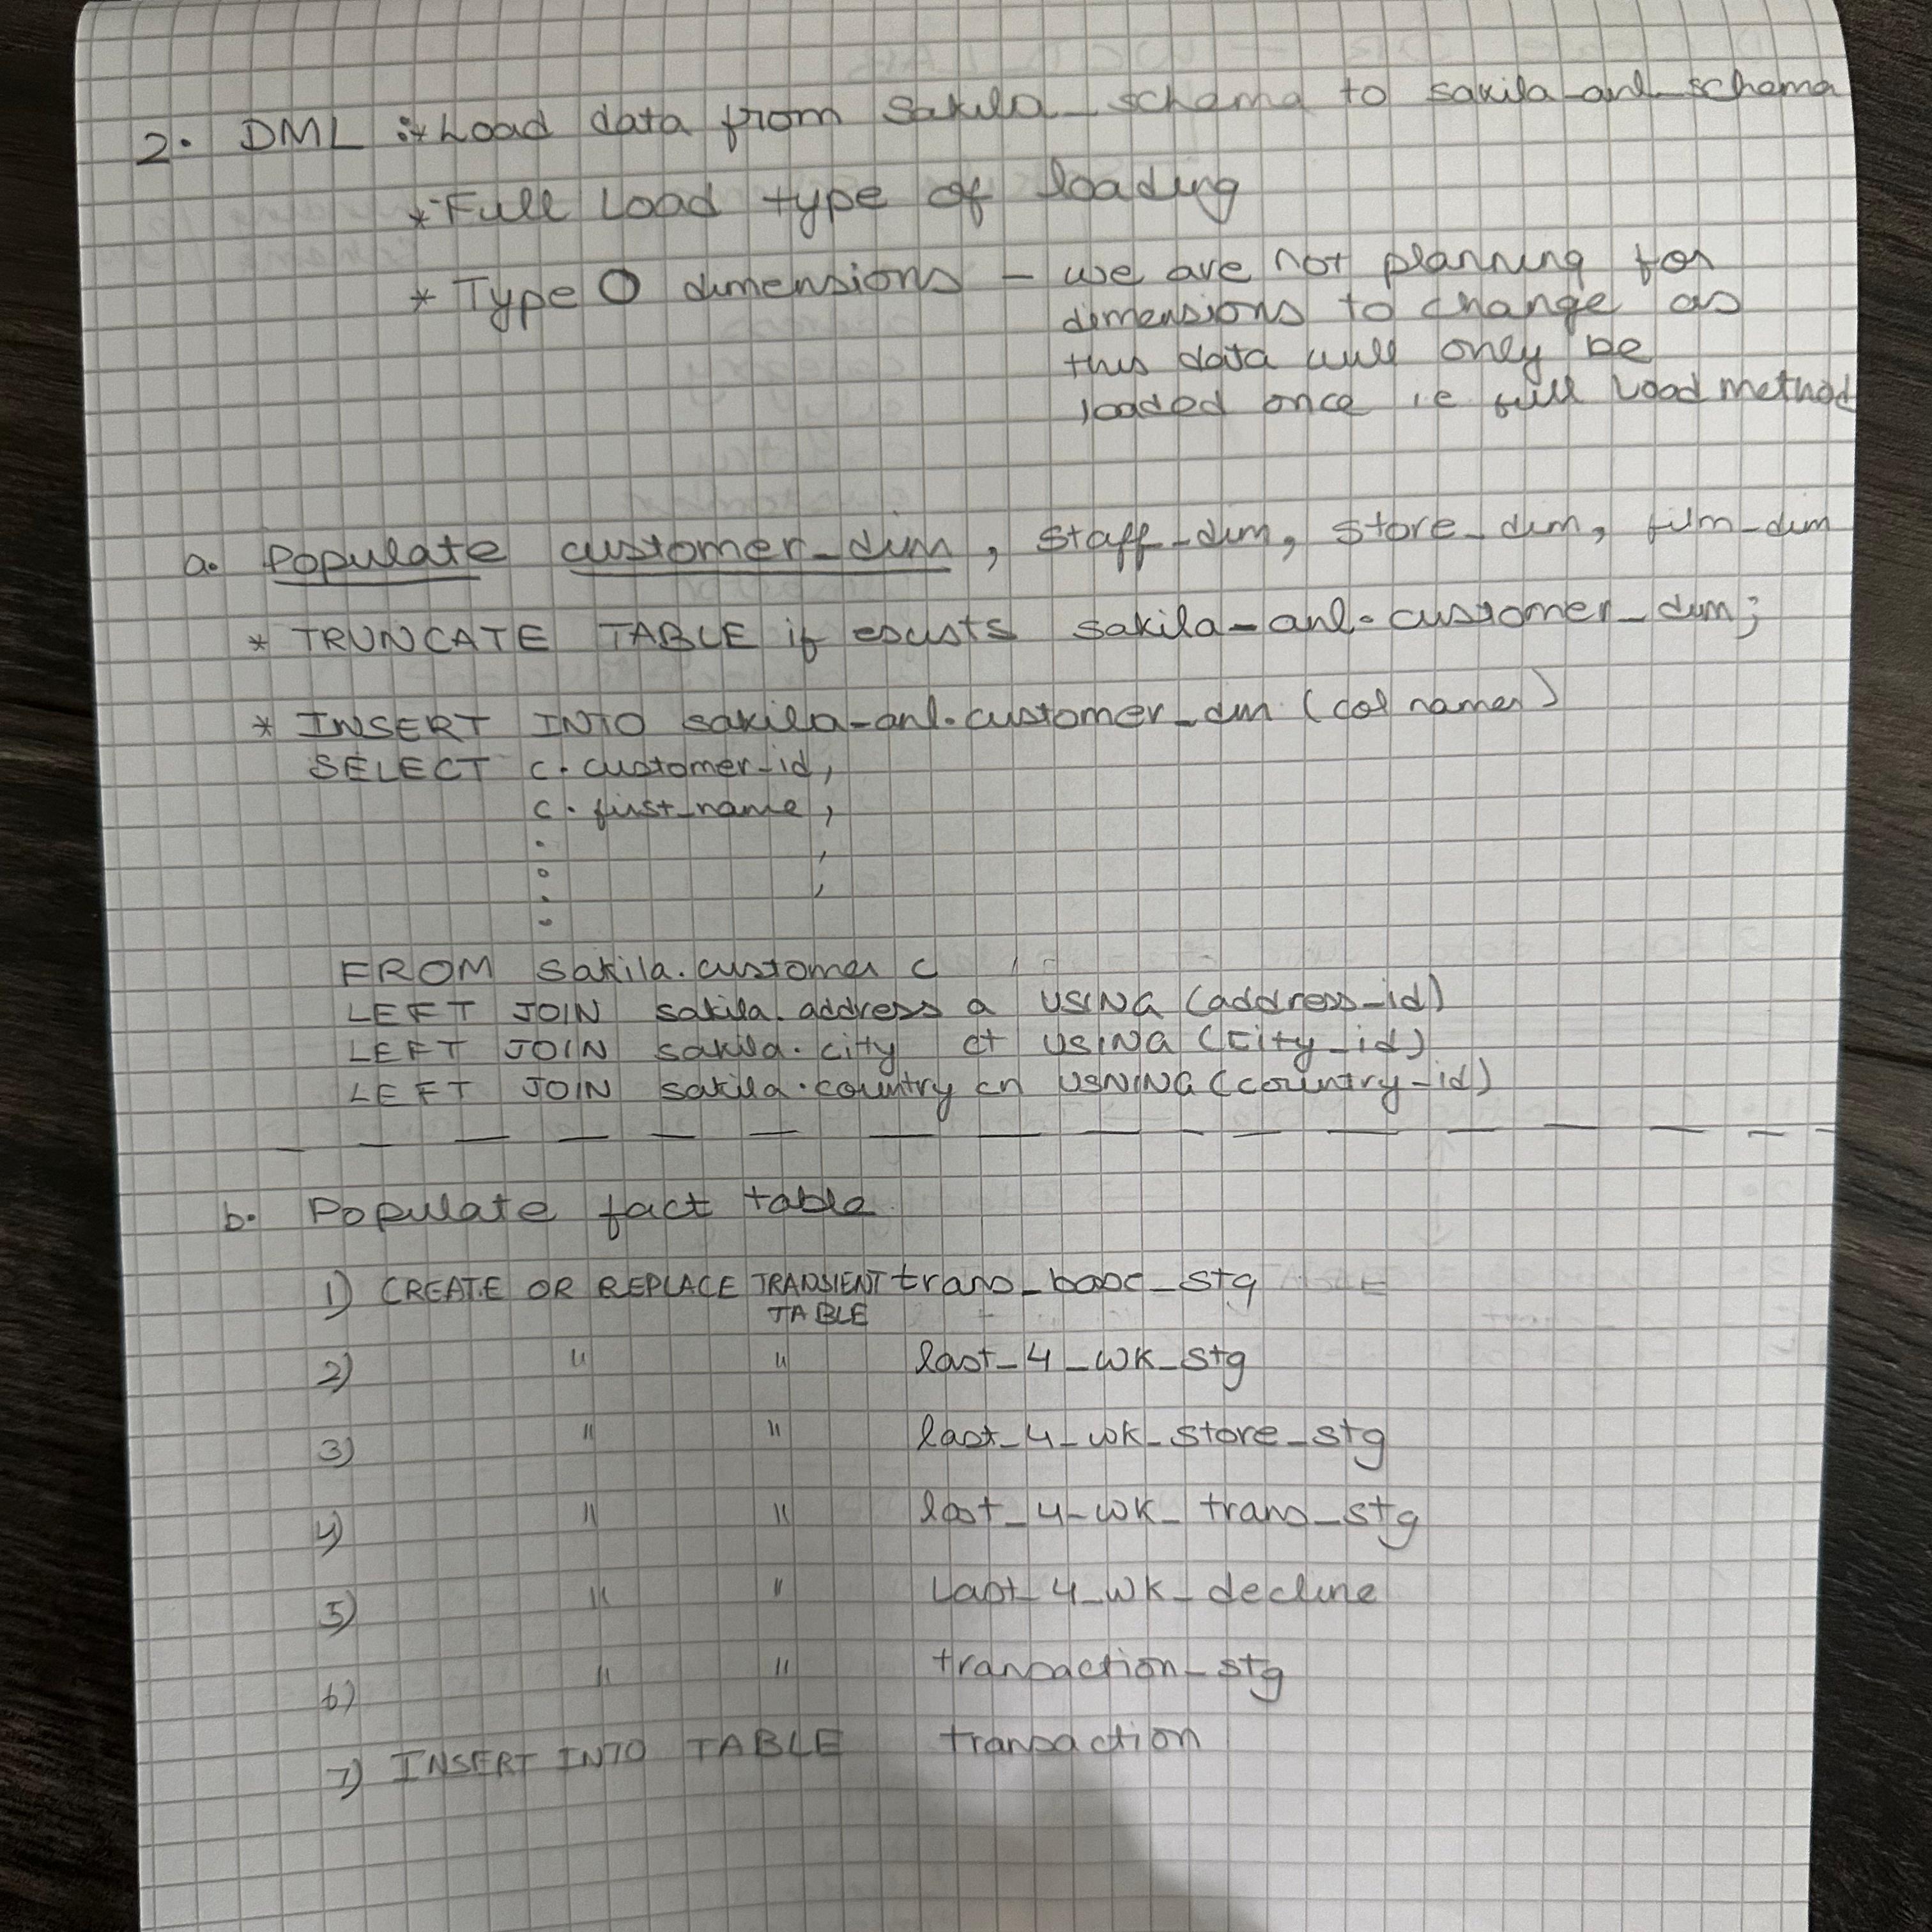 2. DML :* Load data from sakila_schema to sakila_anl_schema
* Full Load type of loading
* Type 0 dimensions - we are not planning for
dimensions to change as
this data will only be
loaded once ie full Load method
a. Populate customer_dim, staff_dim, store_dim, film_dim
* TRUNCATE TABLE if exists sakila_anl.customer_dim;
* INSERT INTO sakila_anl.customer_dim (col names)
SELECT c.customer_id,
c.first_name,
. ,
. ,
.
.
FROM sakila.customer c
LEFT JOIN sakila.address a USING (address_id)
LEFT JOIN sakila.city ct USING (city_id)
LEFT JOIN sakila.country cn USNING (country_id)
b. Populate fact table
1) CREATE OR REPLACE TRANSIENT trans_base_stg
TABLE
2) " " last_4_wk_stg
3) " " last_4_wk_store_stg
4) " " last_4_wk_trans_stg
5) " " Last_4_wk_decline
6) " " transaction_stg
7) INSERT INTO TABLE transaction